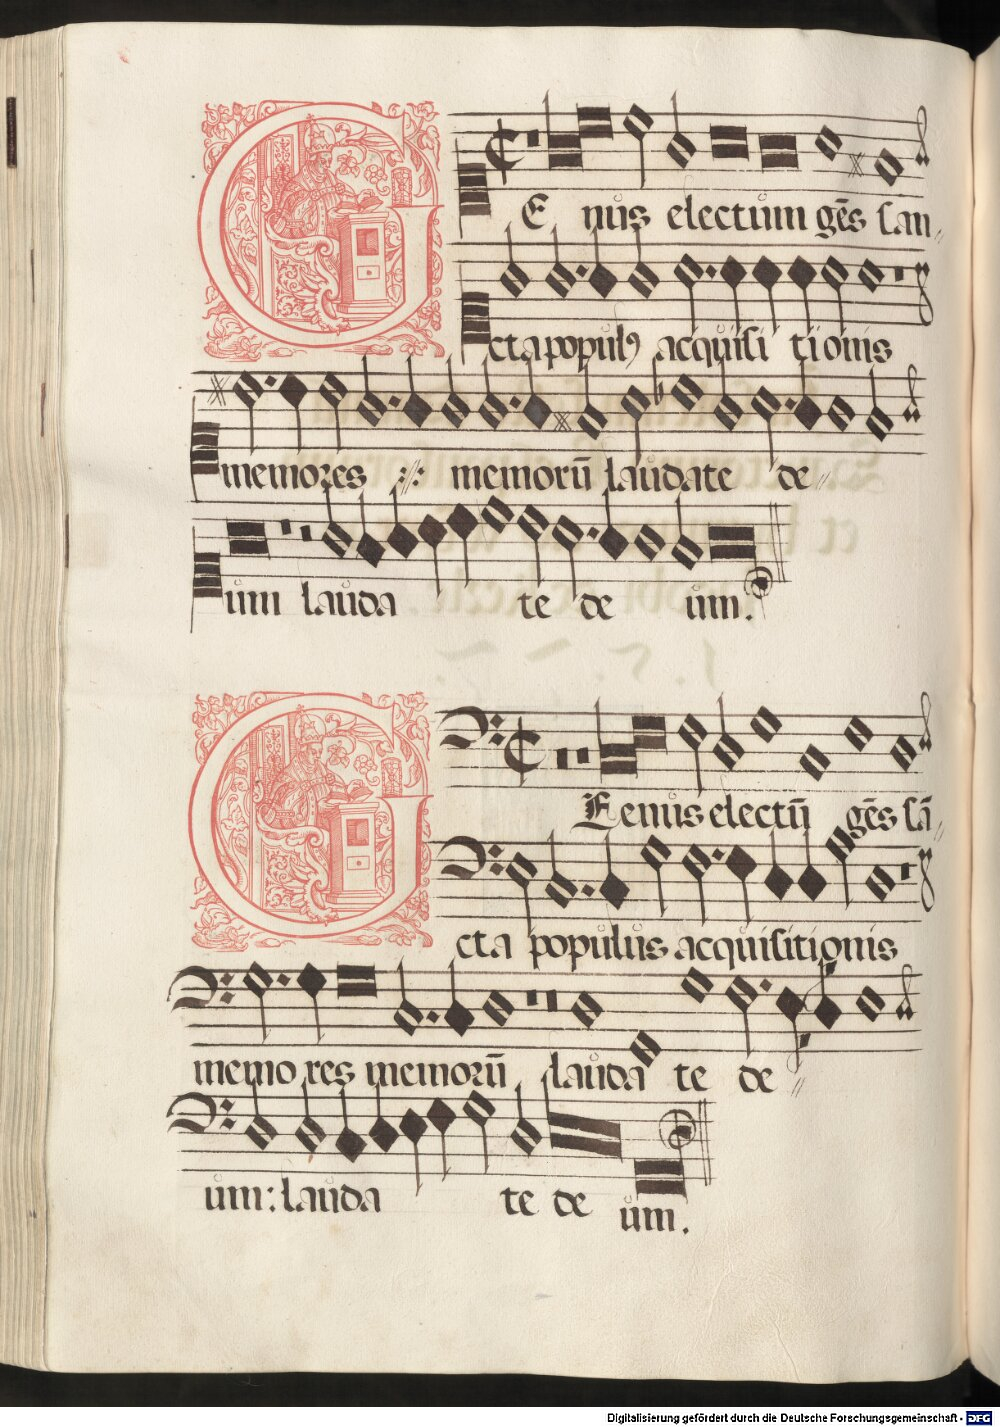 G E nus electum gēs san⸗
cta populꝰ acquisi tionis
memores ://: memorū laudate de⸗
um lauda te de um.
G Eenus electū gēs sā⸗
cta populus acquisitionis
memo res memorū lauda te de⸗
um: lauda te de um.
Digitalisierung gefördert durch die Deutsche Forschungsgemeinschaft - DFG